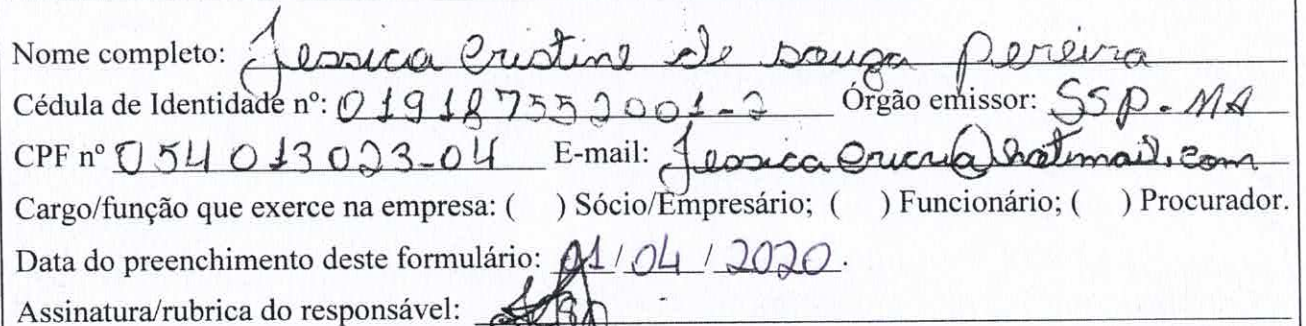 Nome completo: Jessica Cristine de souza pereira
Cédula de Identidade nº: 019187552001-2 Órgão emissor: SSP-MA
CPF nº 054 013 023-04 E-mail: Jessica @hotmail.com
Cargo/função que exerce na empresa: ( ) Sócio/Empresário; ( ) Funcionário; ( ) Procurador.
Data do preenchimento deste formulário: 01/04/2020.
Assinatura/rubrica do responsável: